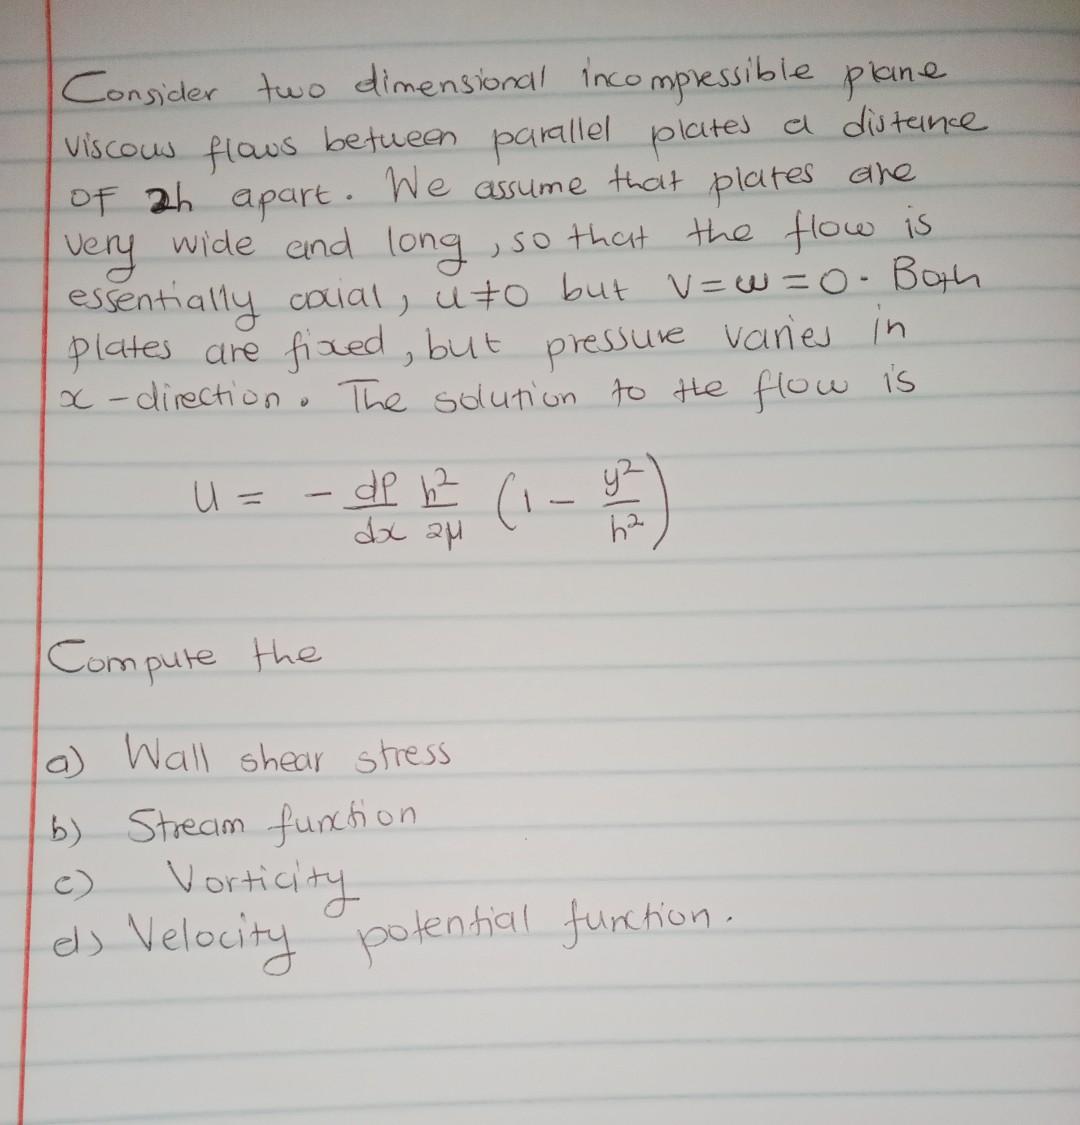 Consider two dimensional incompressible plane
viscous flows between parallel plates a distance
of 2h apart. We assume that plates are
very wide and long, so that the flow is
essentially axial, u≠0 but v=w=0. Both
plates are fixed, but pressure varies in
x-direction. The solution to the flow is
u = - dP/dx h²/2μ (1 - y²/h²)
Compute the
a) Wall shear stress
b) Stream function
c) Vorticity
d) Velocity potential function.